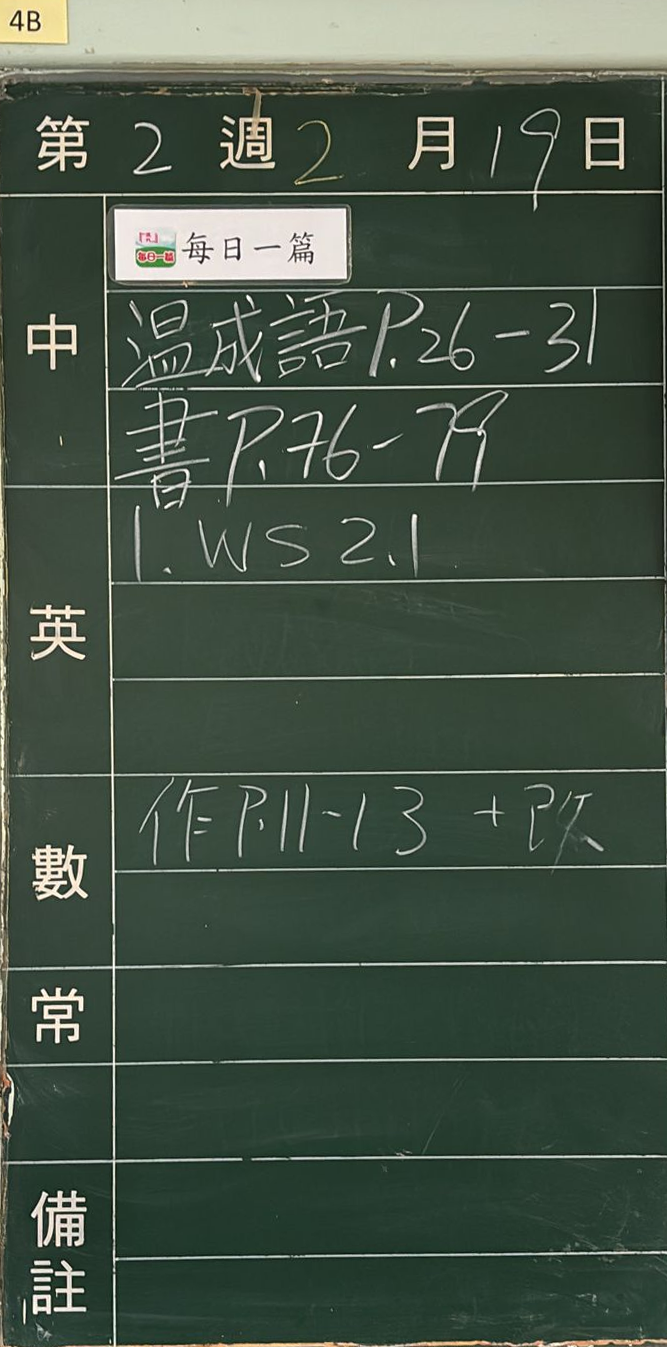 4B
第 2 週 2 月 19 日
中
每日一篇 每日一篇
温成語 P.26-31
書 P.76-79
英
1. WS 2.1
數
作 P.11-13 + 改
常
備註